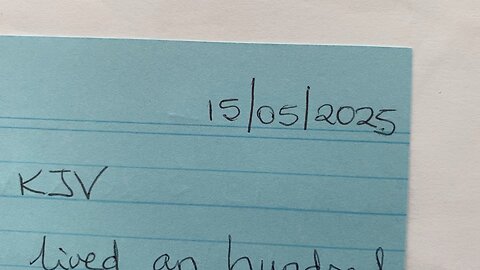 15/05/2025
KJV
lived an hundred